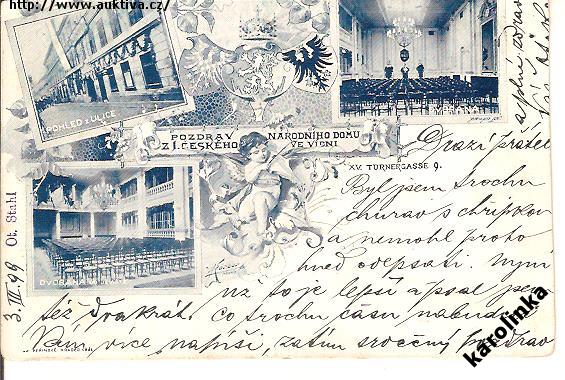 http://www.auktiva.cz/
POHLED Z ULICE
POZDRAV
Z I. ČESKÉHO
NÁRODNÍHO DOMU
VE VÍDNI
XV. TURNERGASSE 9.
DVORANA
Ot. Stahl
3. III. 99
Drazí přátelé
Byl jsem trochu
churav s chřipkou
a nemohl proto
hned odepsati. Nyní
už to je lepší a psal jsem
též dvakrát. Co trochu času nabudu
Vám více napíši, zatím srdečný pozdrav
a plné zdraví
Váš
karolinka